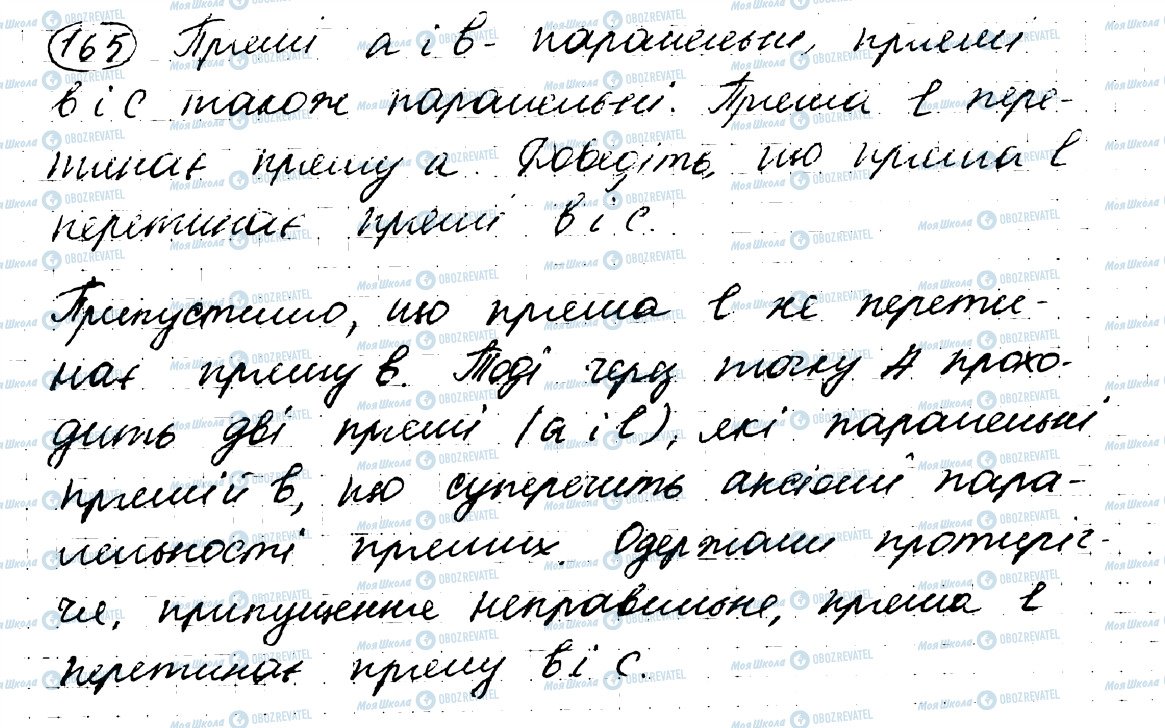 165 Прямі a і b - паралельні, прямі
b і c також паралельні. Пряма l пере-
тинає пряму a. Доведіть, що пряма l
перетинає прямі b і c.
Припустимо, що пряма l не перети-
нає пряму b. Тоді через точку A прохо-
дить дві прямі (a і l), які паралельні
прямій b, що суперечить аксіомі пара-
лельності прямих. Одержали протиріч-
чя, припущення неправильне, пряма l
перетинає пряму b і c.